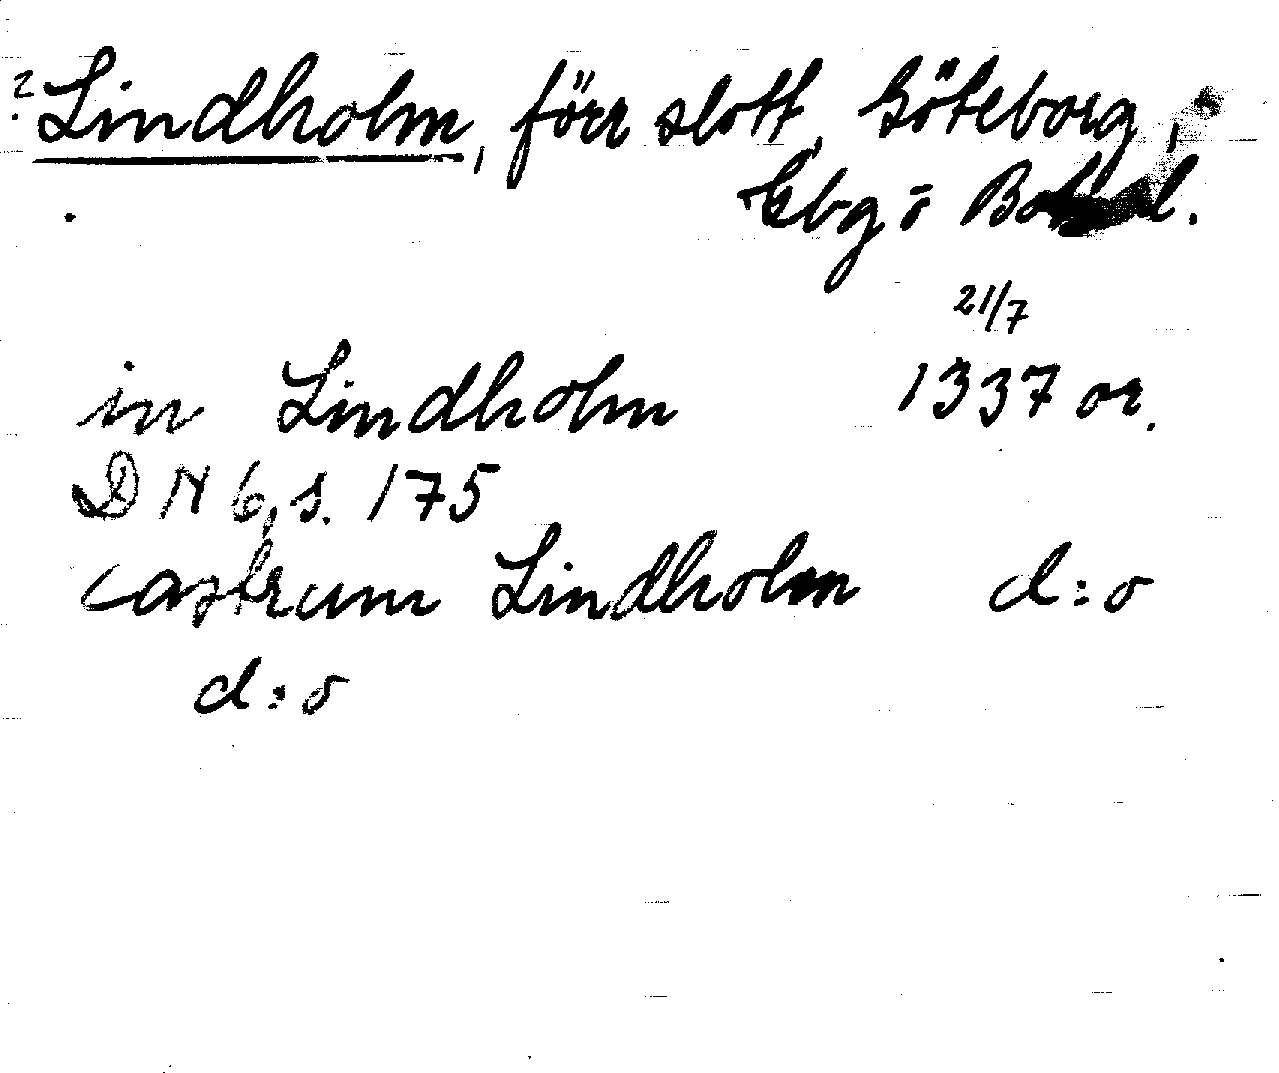 ? Lindholm, förr slott, Göteborg,
Gbg o Bohusl.
21/7
in Lindholm 1337 or.
DN 6, s. 175
castrum Lindholm d:o
d:o